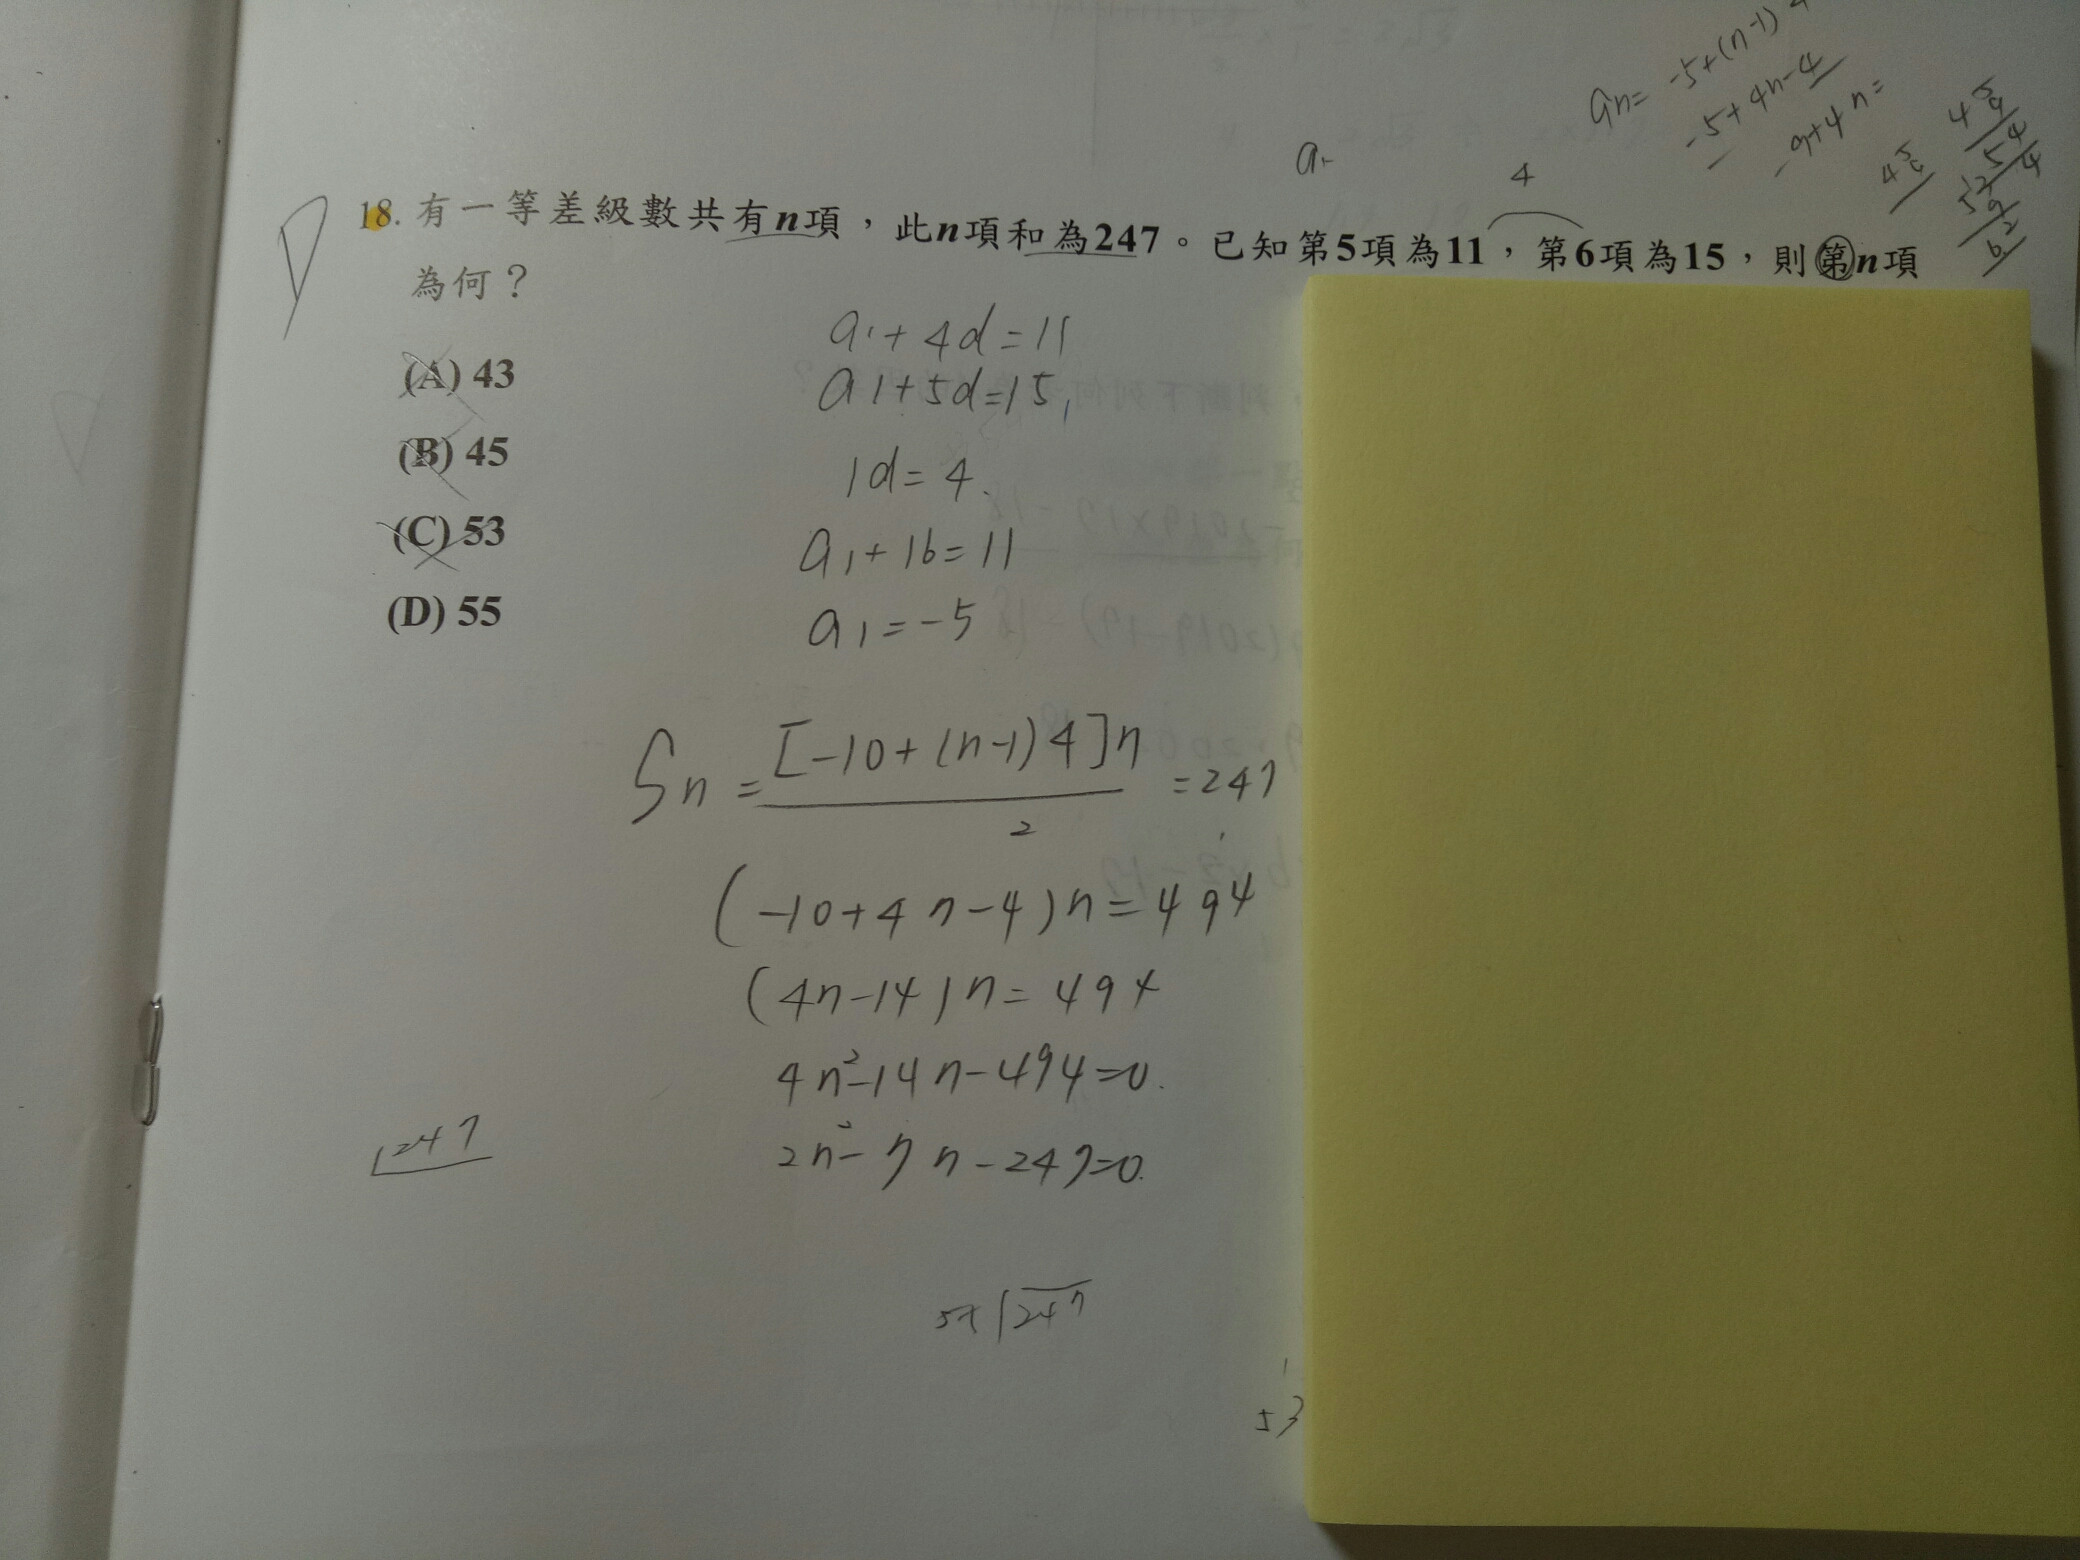 an= -5+(n-1)4
-5+4n-4
-9+4n=
18. 有一等差級數共有n項，此n項和為247。已知第5項為11，第6項為15，則第n項
為何？
4
(A) 43
(B) 45
(C) 53
(D) 55
a1+4d=11
a1+5d=15
1d=4
a1+16=11
a1=-5
Sn=[-10+(n-1)4]n/2=247
(-10+4n-4)n=494
(4n-14)n=494
4n²-14n-494=0
2n²-7n-247=0
247
247
53